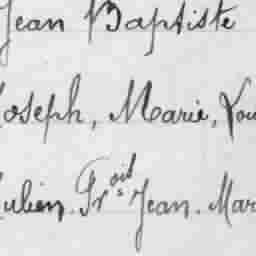 Jean Baptiste
Joseph, Marie, Lou
Julien. Fr.ois Jean. Mar